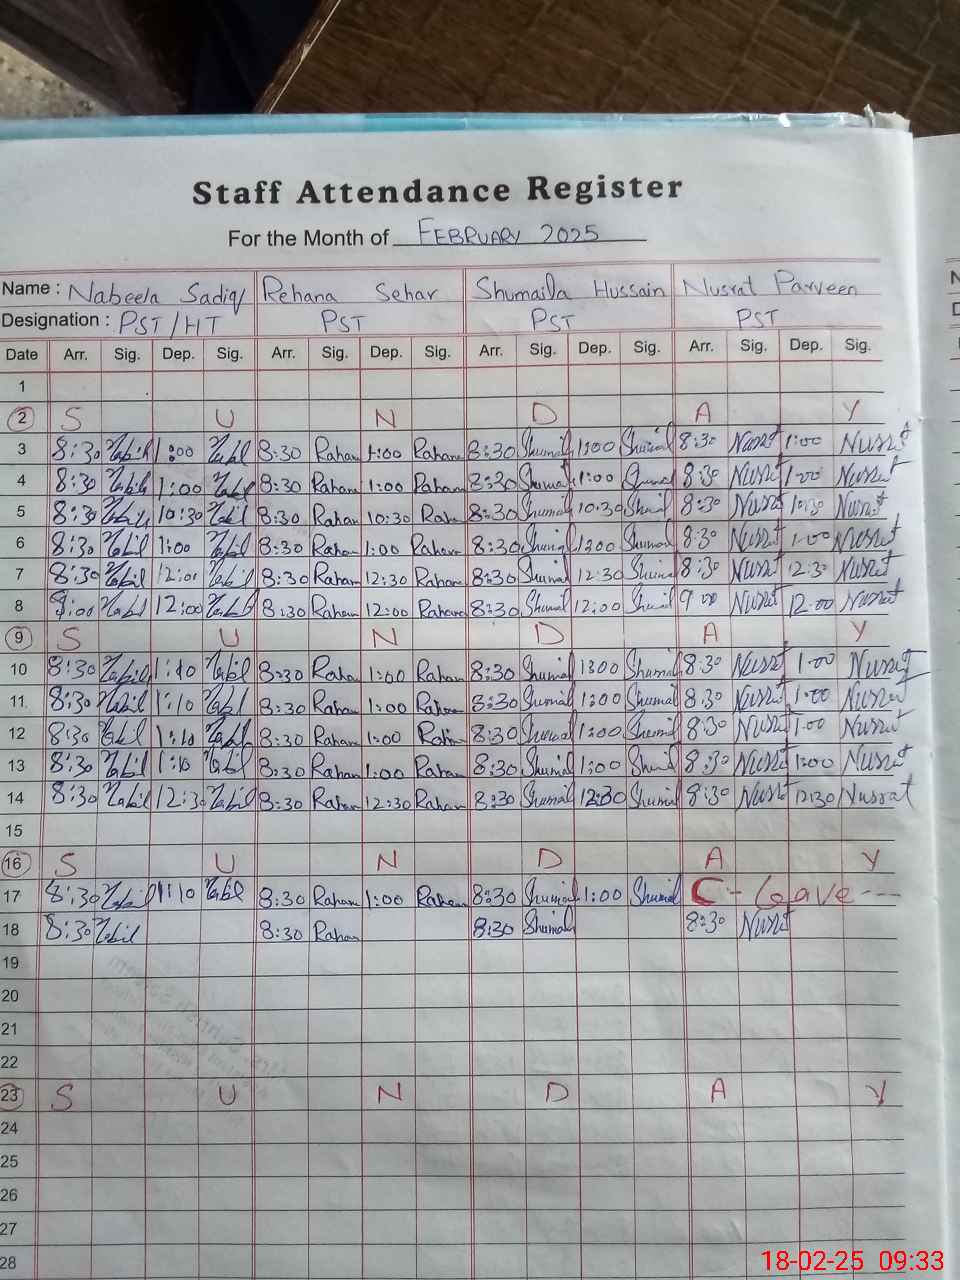 Staff Attendance Register
For the Month of FEBRUARY 2025
Name : Nabeela Sadiq Rehana Sehar Shumaila Hussain Nusrat Parveen
Designation : PST/HT PST PST PST
Date Arr. Sig. Dep. Sig. Arr. Sig. Dep. Sig. Arr. Sig. Dep. Sig. Arr. Sig. Dep. Sig.
1
2 S U N D A Y
3 8:30 1:00 8:30 Raham 1:00 Raham 8:30 Shumail 1:00 Shumail 8:30 Nusrat 1:00 Nusrat
4 8:30 1:00 8:30 Raham 1:00 Raham 8:30 Shumail 1:00 Shumail 8:30 Nusrat 1:00 Nusrat
5 8:30 10:30 8:30 Raham 10:30 Rah 8:30 Shumail 10:30 8:30 Nusrat 10:30 Nusrat
6 8:30 1:00 8:30 Raham 1:00 Raham 8:30 Shumail 1:00 Shumail 8:30 Nusrat 1:00 Nusrat
7 8:30 12:00 8:30 Raham 12:30 Raham 8:30 Shumail 12:30 Shumail 8:30 Nusrat 12:30 Nusrat
8 9:00 12:00 8:30 Raham 12:00 Raham 8:30 Shumail 12:00 9:00 Nusrat 12:00 Nusrat
9 S U N D A Y
10 8:30 1:10 8:30 Raham 1:00 Raham 8:30 Shumail 1:00 Shumail 8:30 Nusrat 1:00 Nusrat
11 8:30 1:10 8:30 Raham 1:00 Raham 8:30 Shumail 1:00 Shumail 8:30 Nusrat 1:00 Nusrat
12 8:30 1:10 8:30 Raham 1:00 8:30 Shumail 1:00 Shumail 8:30 Nusrat 1:00 Nusrat
13 8:30 1:10 8:30 Raham 1:00 Raham 8:30 Shumail 1:00 8:30 Nusrat 1:00 Nusrat
14 8:30 12:30 8:30 Raham 12:30 Raham 8:30 Shumail 12:30 Shumail 8:30 Nusrat 12:30 Nusrat
15
16 S U N D A Y
17 8:30 1:10 8:30 Raham 1:00 Raham 8:30 Shumail 1:00 Shumail C - Leave ---
18 8:30 8:30 Raham 8:30 Shumail 8:30 Nusrat
19
20
21
22
23 S U N D A Y
24
25
26
27
28
18-02-25 09:33